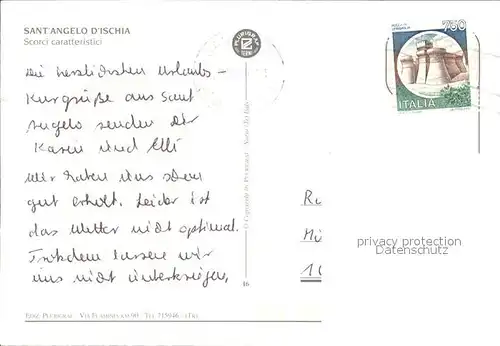 SANT'ANGELO D'ISCHIA
Scorci caratteristici
PLURIGRAF
TERNI
750
ITALIA
Die herzlichsten Urlaubs-
Kurgrüße aus Sant
Angelo senden Dir
Karin und Elli
Wir haben uns schon
gut erholt. Leider ist
das Wetter nicht optimal.
Trotzdem lassen wir
uns nicht unterkriegen.
Ediz. PLURIGRAF
TEL. 715946
16
R
Mü
1
privacy protection
Datenschutz